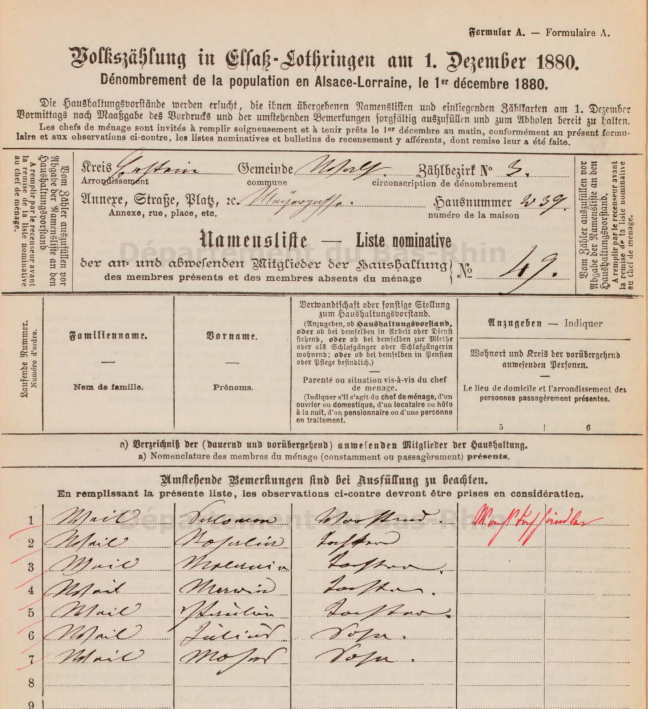 Formular A. — Formulaire A.
Volkszählung in Elsaß-Lothringen am 1. Dezember 1880.
Dénombrement de la population en Alsace-Lorraine, le 1er décembre 1880.
Die Haushaltungsvorstände werden ersucht, die ihnen übergebenen Namenslisten und einliegenden Zählkarten am 1. Dezember
Vormittags nach Maaßgabe des Vordrucks und der umstehenden Bemerkungen sorgfältig auszufüllen und zum Abholen bereit zu halten.
Les chefs de ménage sont invités à remplir soigneusement et à tenir prêts le 1er décembre au matin, conformément au présent formu-
laire et aux observations ci-contre, les listes nominatives et bulletins de recensement y afférents, dont remise leur a été faite.
Vom Zähler auszufüllen vor
Abgabe der Namensliste an den
Haushaltungsvorstand.
A remplir par le recenseur avant
la remise de la liste nominative
au chef de ménage.
Kreis Erstein Gemeinde Zählbezirk No 3.
Arrondissement commune circonscription de dénombrement
Annexe, Straße, Platz, ꝛc. Hausnummer 239.
Annexe, rue, place, etc. numéro de la maison
Namensliste — Liste nominative
der an- und abwesenden Mitglieder der Haushaltung
des membres présents et des membres absents du ménage
No 49.
Vom Zähler auszufüllen vor
Abgabe der Namensliste an den
Haushaltungsvorstand.
A remplir par le recenseur avant
la remise de la liste nominative
au chef de ménage.
Département du Bas-Rhin
Laufende Nummer.
Numéro d'ordre.
Familienname.
Nom de famille.
Vorname.
Prénoms.
Verwandtschaft oder sonstige Stellung
zum Haushaltungsvorstand.
(Anzugeben, ob Haushaltungsvorstand,
oder ob bei demselben in Arbeit oder Dienst
stehend, oder ob bei demselben zur Miethe
oder als Schlafgänger oder Schlafgängerin
wohnend; oder ob bei demselben in Pension
oder Pflege befindlich.)
Parenté ou situation vis-à-vis du chef
de ménage.
(Indiquer s'il s'agit du chef de ménage, d'un
ouvrier ou domestique, d'un locataire ou hôte
à la nuit, d'un pensionnaire ou d'une personne
en traitement.
Anzugeben — Indiquer
Wohnort und Kreis der vorübergehend
anwesenden Personen.
Le lieu de domicile et l'arrondissement des
personnes passagèrement présentes.
5 6
a) Verzeichniß der (dauernd und vorübergehend) anwesenden Mitglieder der Haushaltung.
a) Nomenclature des membres du ménage (constamment ou passagèrement) présents.
Umstehende Bemerkungen sind bei Ausfüllung zu beachten.
En remplissant la présente liste, les observations ci-contre devront être prises en considération.
Département du Bas-Rhin
1 Weil Salomon Vorstand.
2 Weil Rosalie Tochter
3 Weil Tochter.
4 Weil Tochter.
5 Weil Tochter.
6 Weil Julius Sohn.
7 Weil Moses Sohn.
8
9